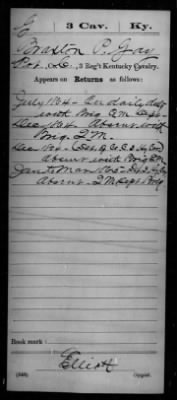 E 3 Cav. Ky.
Braxton P. Gray
Pvt., Co. E, 3 Reg't Kentucky Cavalry.
Appears on Returns as follows:
July 1864 - On daily duty
with Brig Q.M. Dept
Dec 1864 Absent with
Brig. Q.M.
Absent with Brig Q.M.
Jan to Mar 1865 -
Absent - Q.M. Dept Brig
Book mark:
Elliott
(546) Copyist.